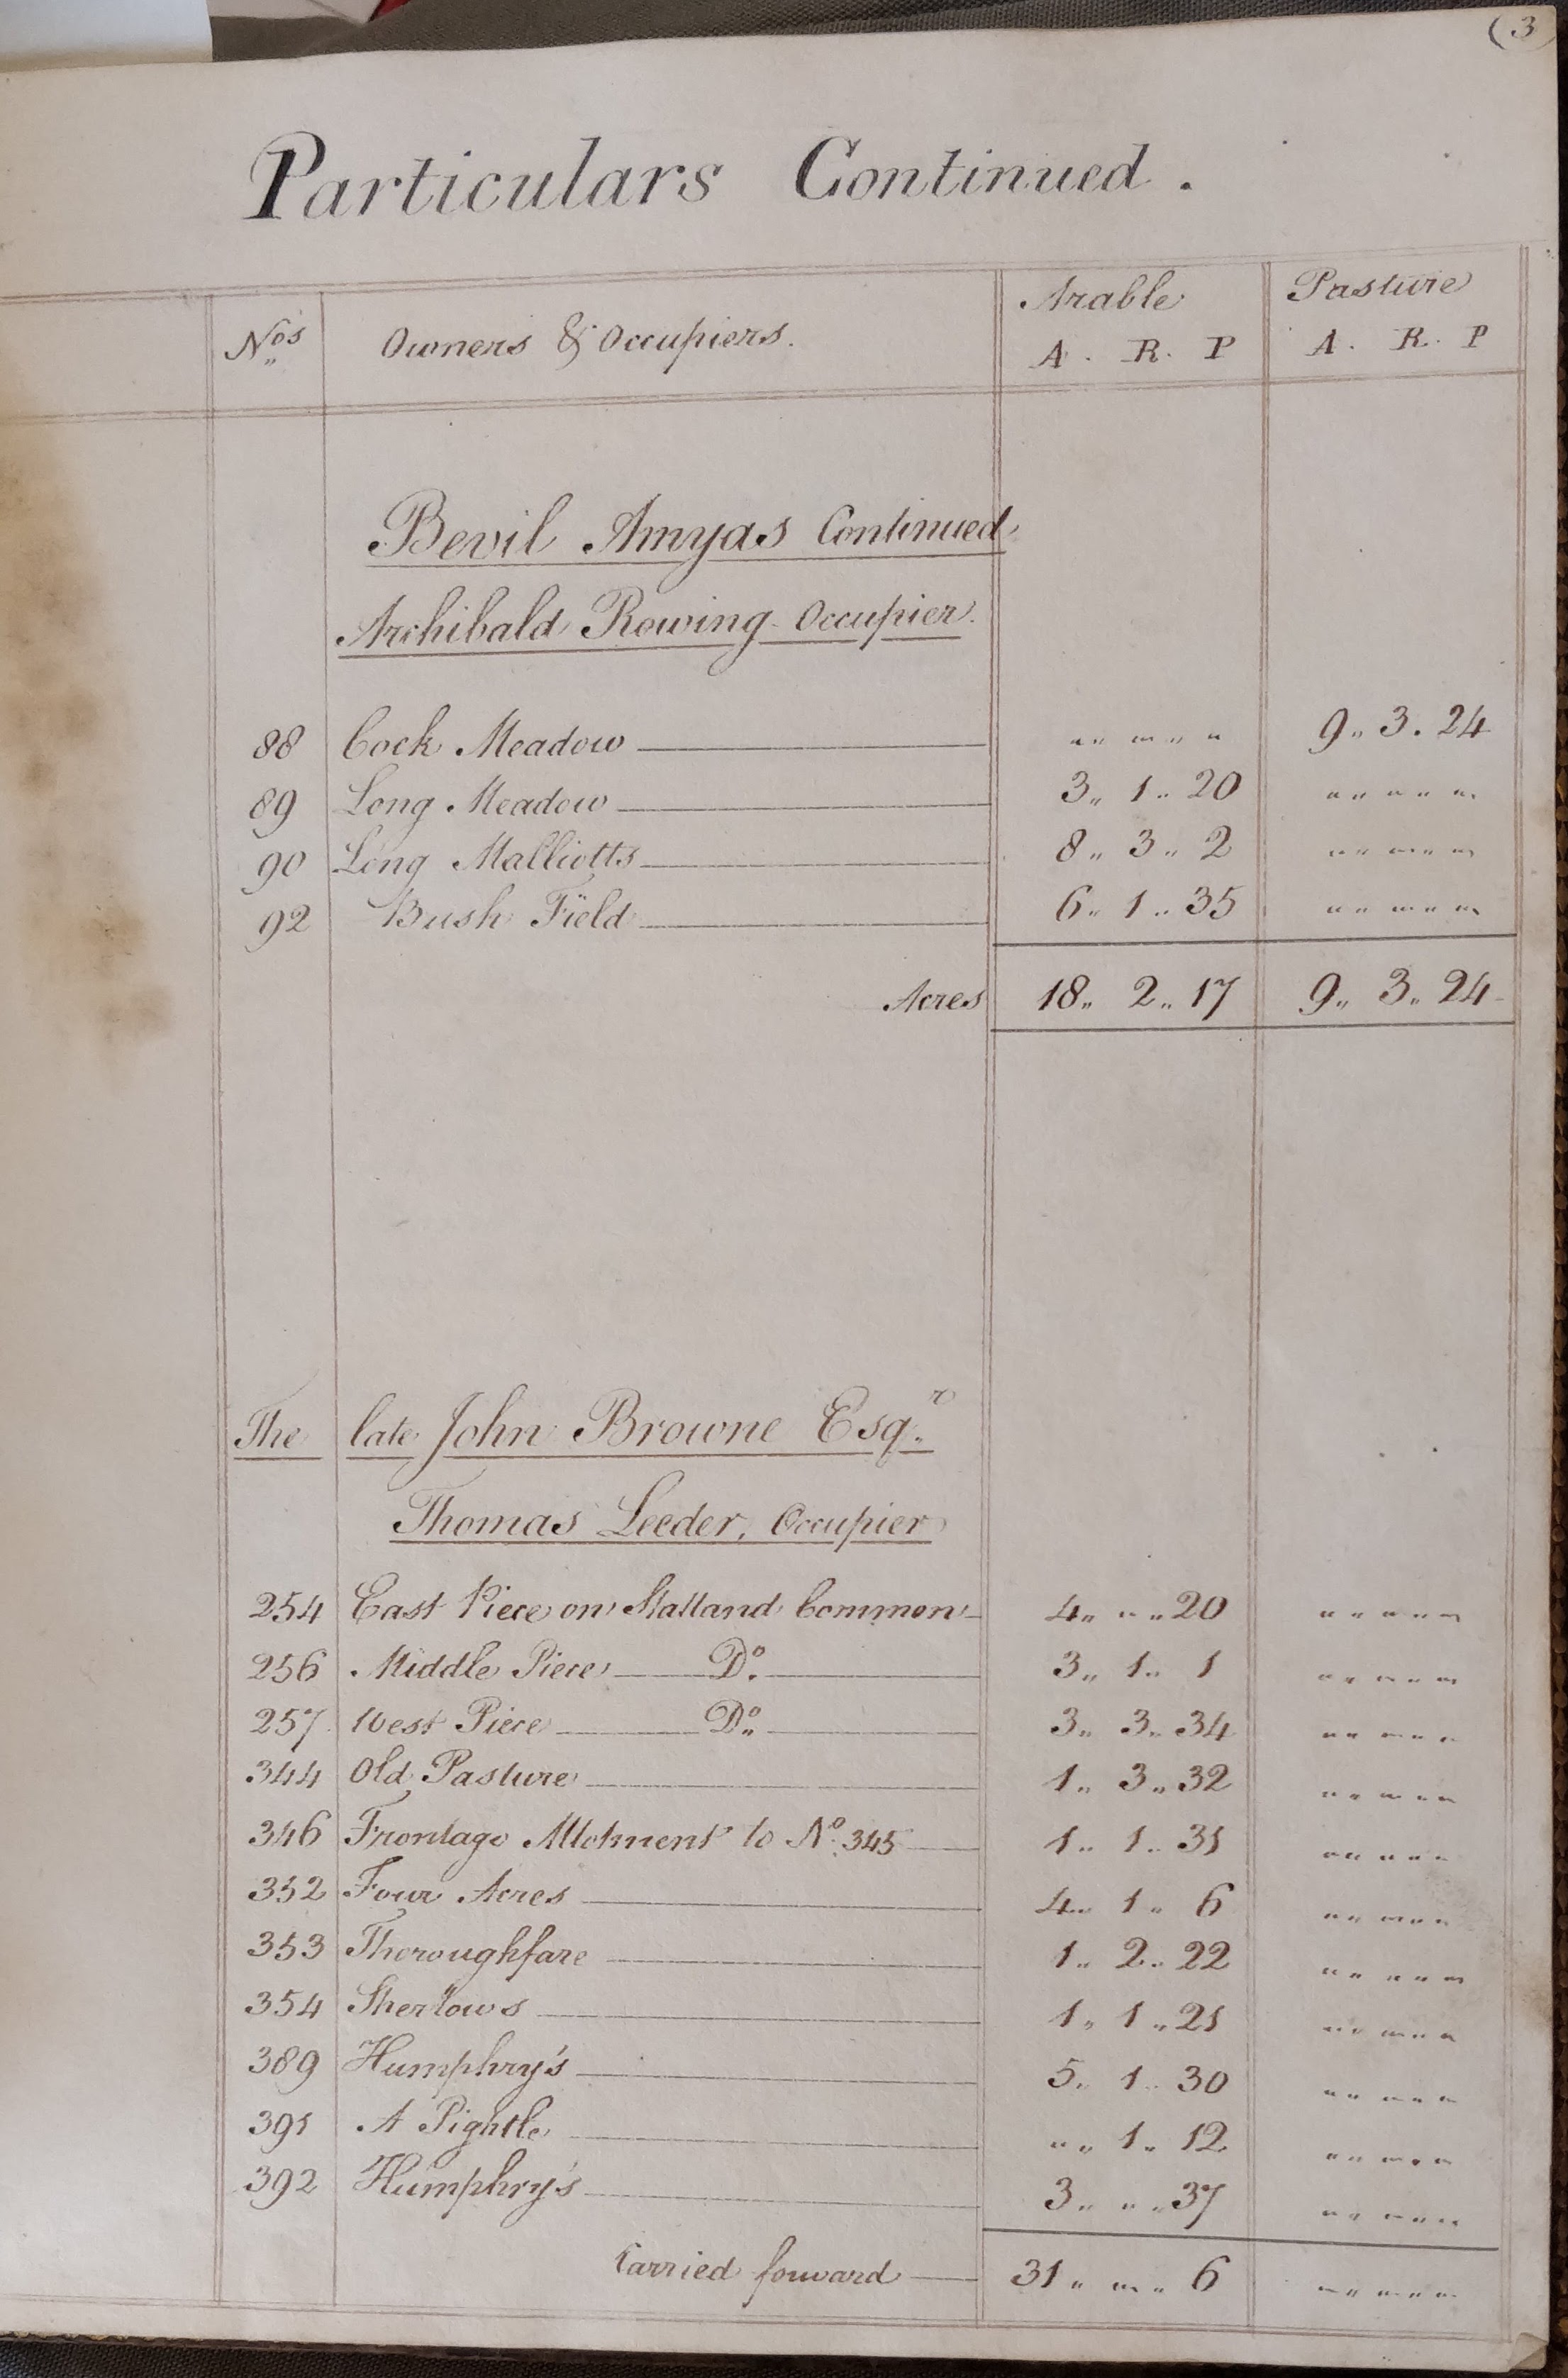 (3)
Particulars Continued.
Nos Owners & Occupiers. Arable A. R. P Pasture A. R. P
Bevil Amyas Continued
Archibald Rowing Occupier.
88 Cock Meadow " " " 9" 3. 24
89 Long Meadow 3" 1" 20 " " "
90 Long Malliotts 8" 3" 2 " " "
92 Bush Field 6" 1" 35 " " "
Acres 18" 2" 17 9" 3" 24
The late John Browne Esqr.
Thomas Leeder, Occupier
254 East Piece on Stalland Common 4" " 20 " " "
256 Middle Piece Do. 3" 1" 1 " " "
257 West Piece Do. 3" 3" 34 " " "
344 Old Pasture 1" 3" 32 " " "
346 Frontage Allotment to No. 345 1" 1" 31 " " "
352 Four Acres 4" 1" 6 " " "
353 Thoroughfare 1" 2" 22 " " "
354 1" 1" 21 " " "
389 Humphry's 5" 1" 30 " " "
391 A Pightle " 1" 12 " " "
392 Humphry's 3" " 37 " " "
Carried forward 31" " 6 " " "